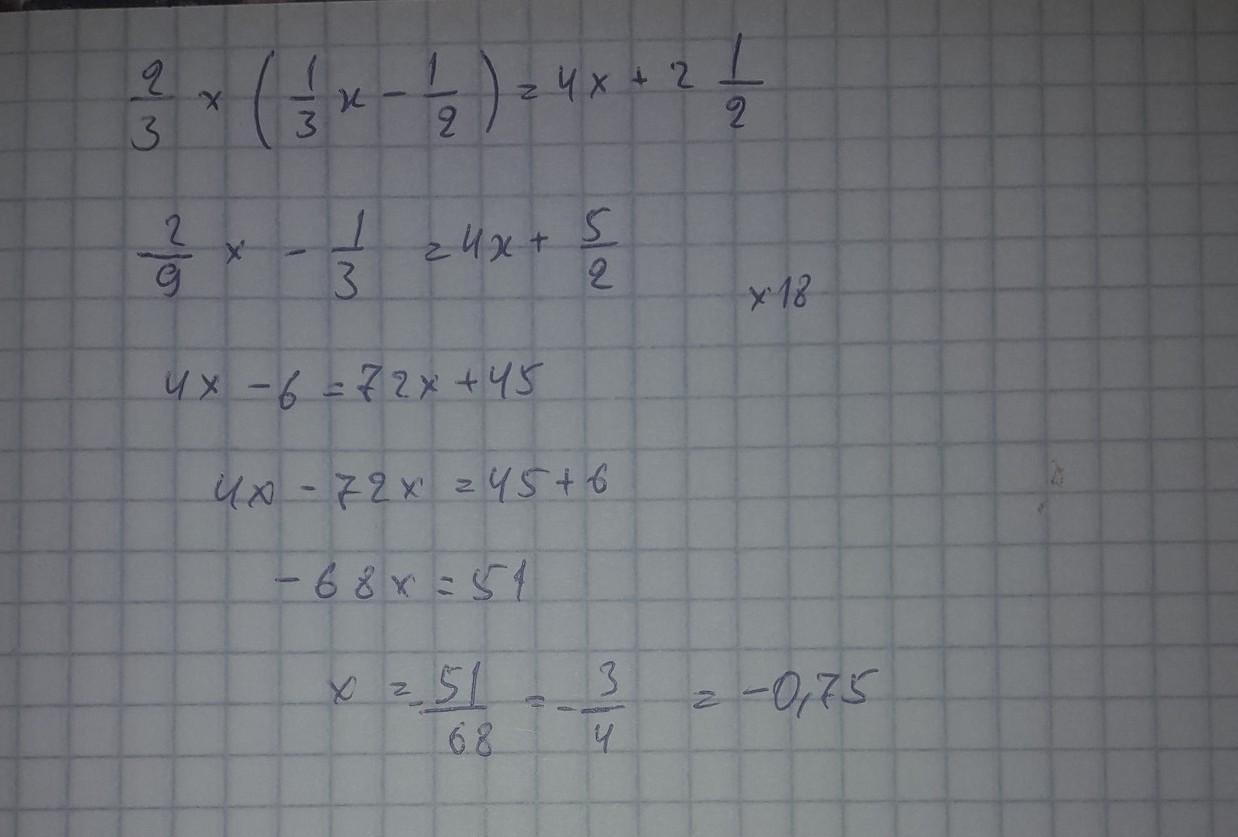 2/3 x (1/3 x - 1/2) = 4x + 2 1/2
2/9 x - 1/3 = 4x + 5/2
x18
4x - 6 = 72x + 45
4x - 72x = 45 + 6
-68x = 51
x = -51/68 = -3/4 = -0,75